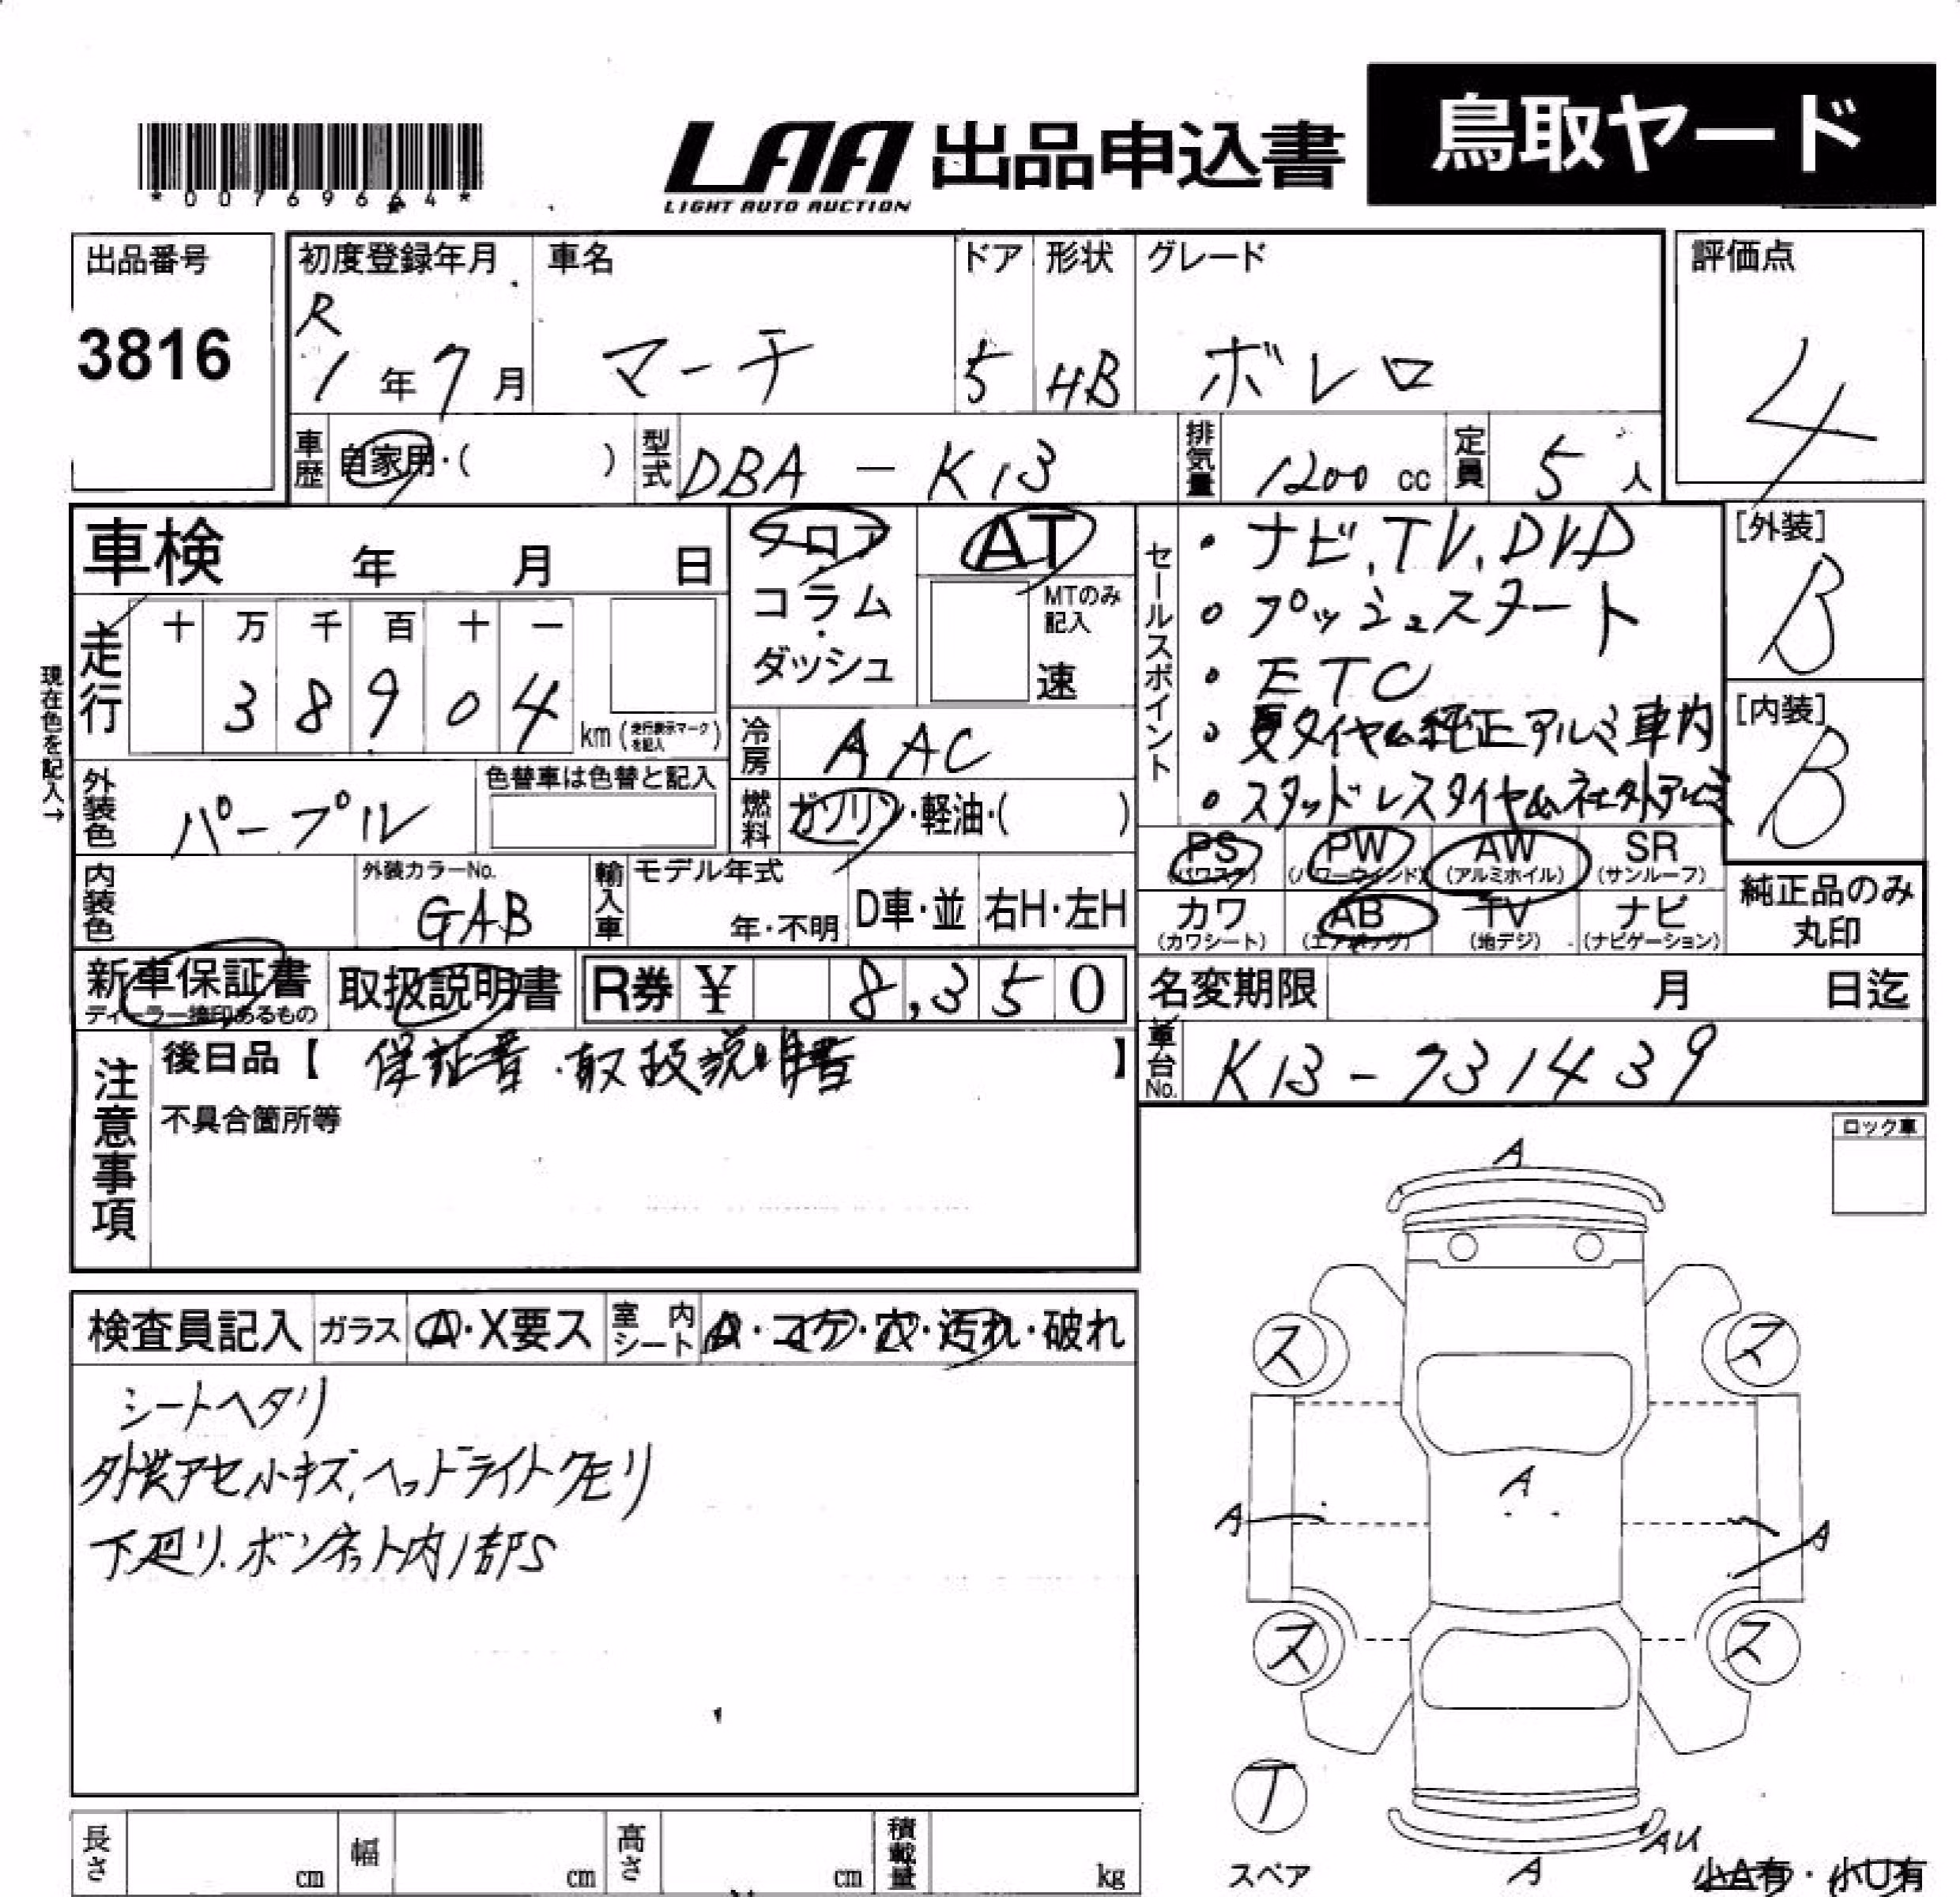 *00769664*
LAA
LIGHT AUTO AUCTION
出品申込書
鳥取ヤード
出品番号
3816
初度登録年月
R
1年7月
車名
マーチ
ドア
5
形状
HB
グレード
ボレロ
評価点
4
車歴
自家用・( )
型式
DBA - K13
排気量
1200 cc
定員
5 人
車検 年 月 日
フロア
コラム
・
ダッシュ
AT
MTのみ記入
速
セールスポイント
・ナビ、TV、DVD
・プッシュスタート
・ETC
・夏タイヤゴム純正アルミ車内
・スタッドレスタイヤゴム社外アルミ
[外装]
B
[内装]
B
現在色を記入→
走行
十 万 千 百 十 一
3 8 9 0 4
km (走行表示マークを記入)
冷房
AAC
外装色
パープル
色替車は色替と記入
燃料
ガソリン・軽油・( )
内装色
外装カラーNo.
GAB
輸入車
モデル年式
年・不明
D車・並
右H・左H
PS
(パワステ)
PW
(パワーウィンド)
AW
(アルミホイル)
SR
(サンルーフ)
カワ
(カワシート)
AB
(エアバッグ)
TV
(地デジ)
ナビ
(ナビゲーション)
純正品のみ
丸印
新車保証書
ディーラー捺印あるもの
取扱説明書
R券 ¥ 8,350
名変期限 月 日迄
注意事項
後日品【 保証書・取扱説明書 】
不具合箇所等
車台No.
K13-731439
ロック車
検査員記入
ガラス
A・X要ス
室内シート
A・コゲ・穴・汚れ・破れ
シートヘタリ
外装アセ小キズ、ヘッドライトクモリ
下廻り、ボンネット内部S
A
ス
ス
A
A
A
ス
ス
T
スペア
AU
A
小A有・小U有
長さ cm
幅 cm
高さ cm
積載量 kg